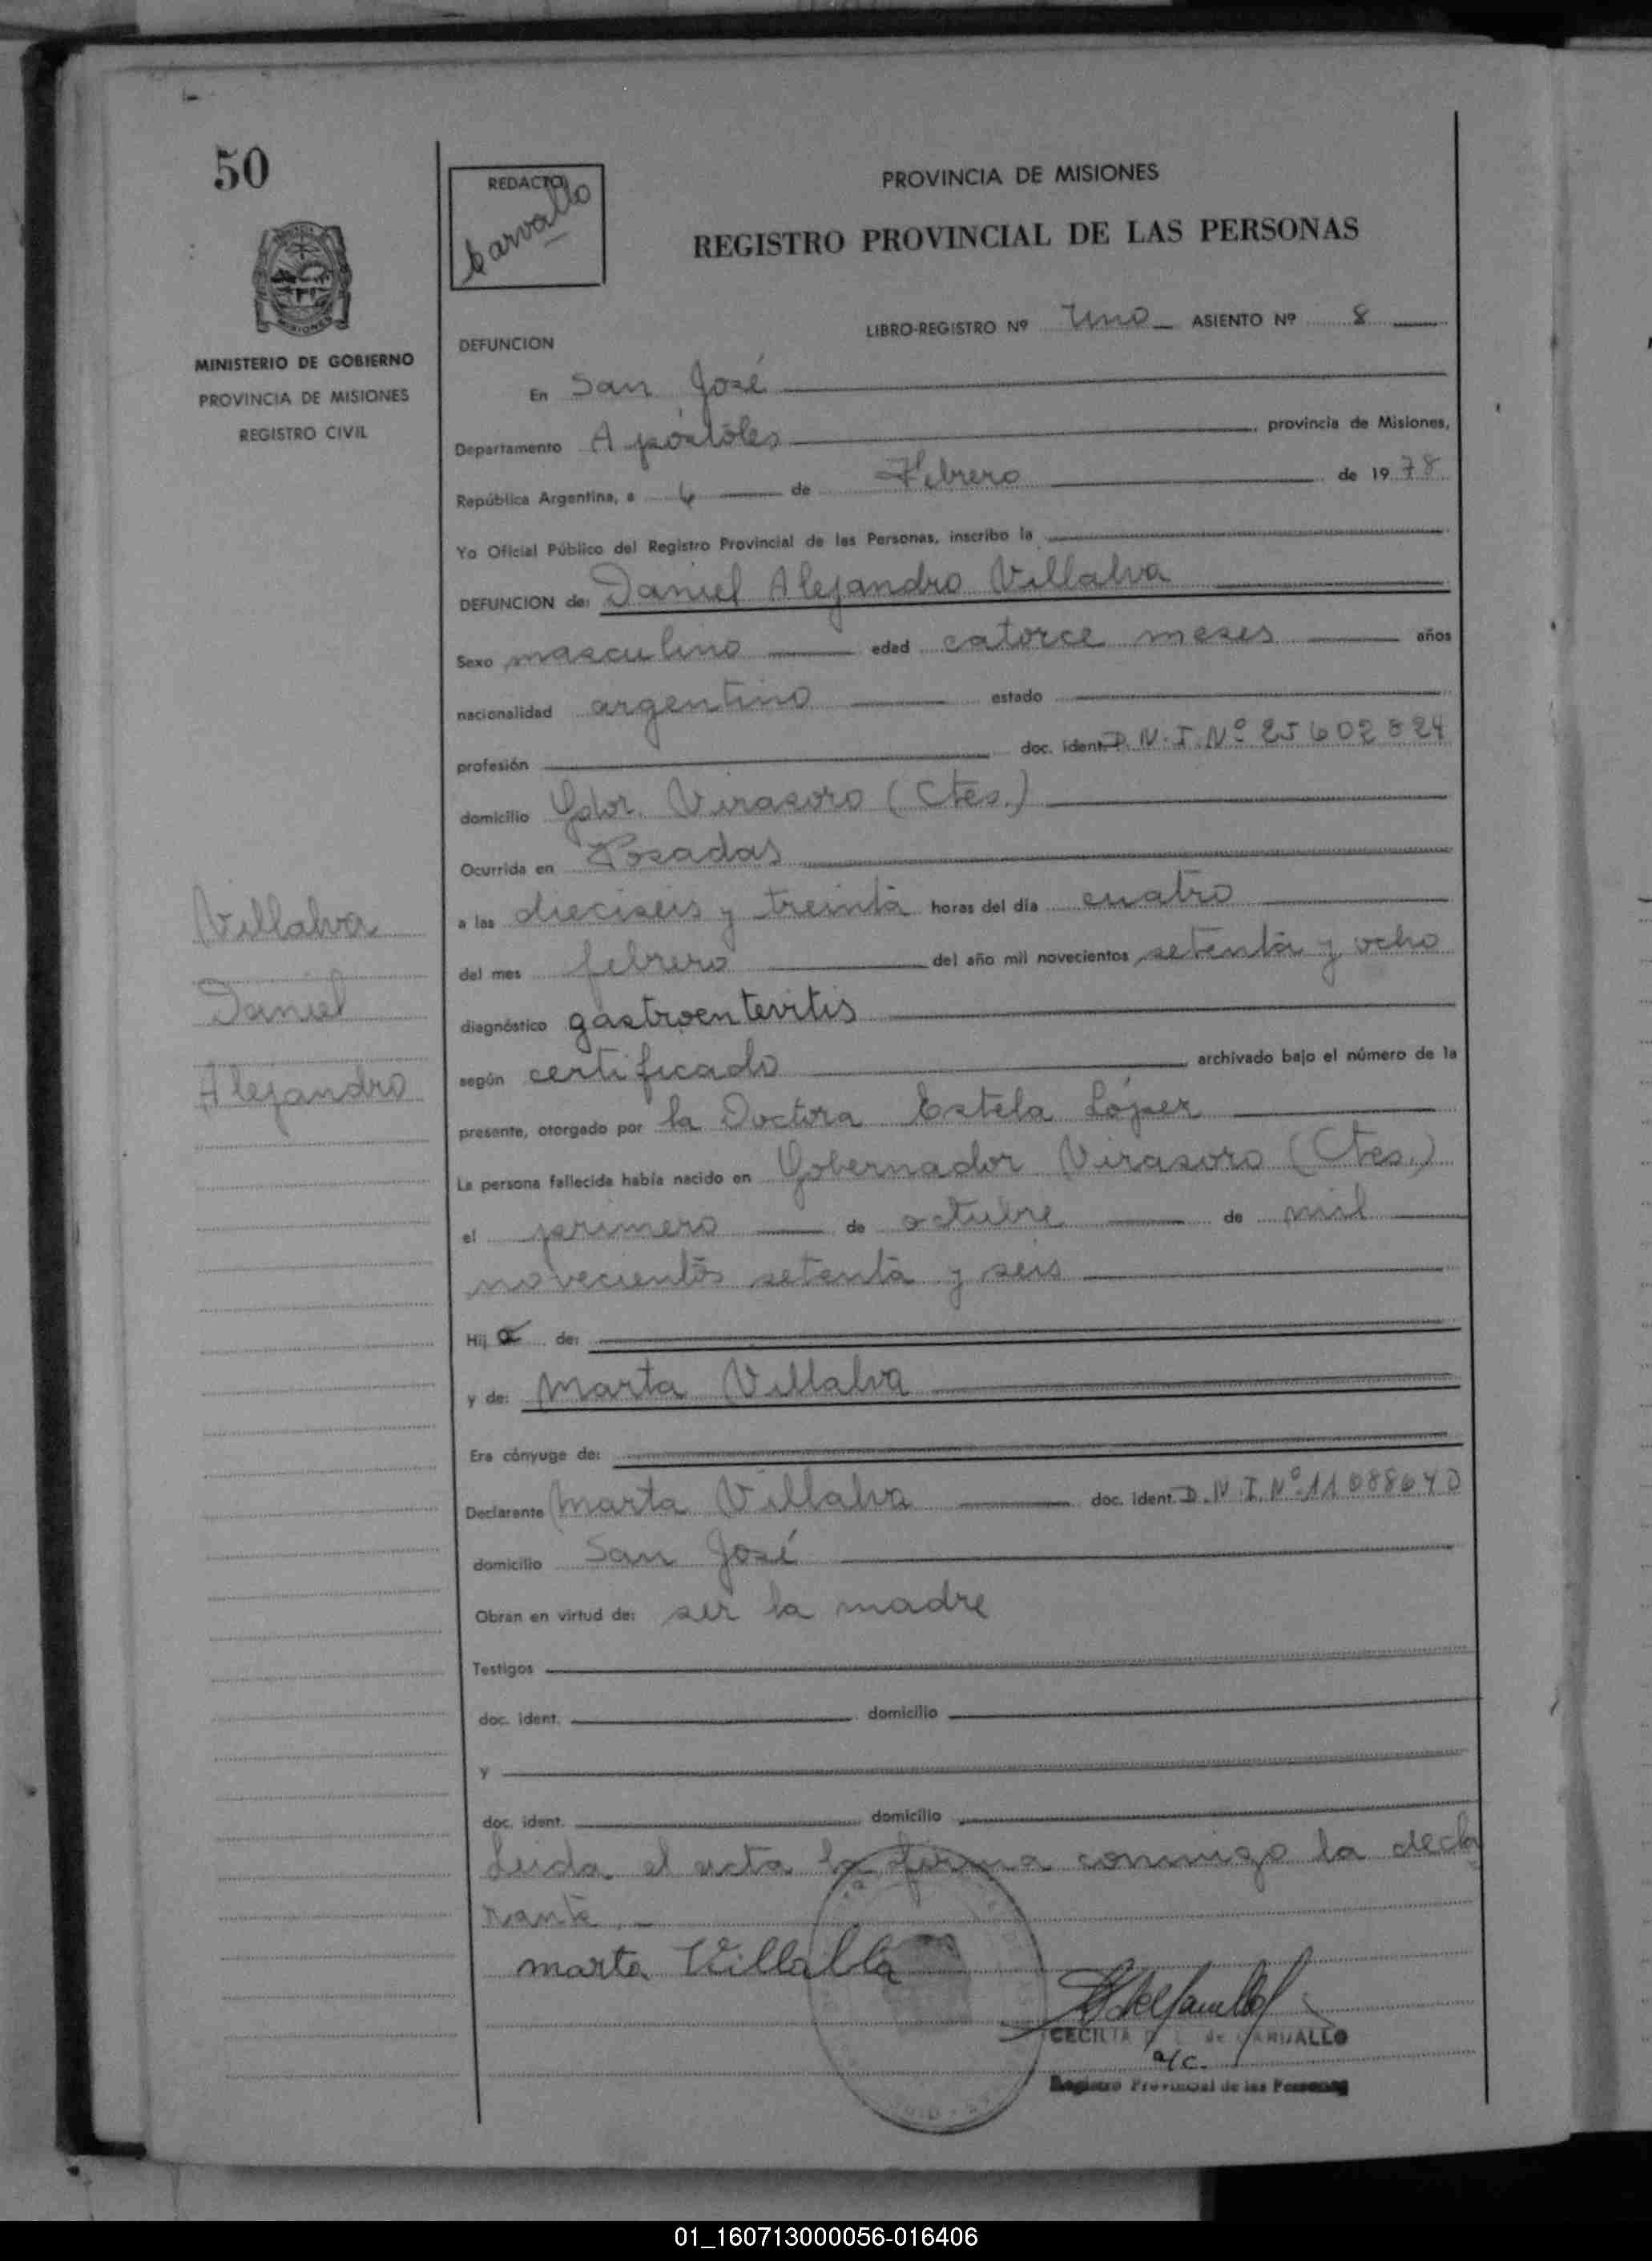 50
REDACTO
Carvallo
PROVINCIA DE MISIONES
REGISTRO PROVINCIAL DE LAS PERSONAS
MISIONES
MINISTERIO DE GOBIERNO
PROVINCIA DE MISIONES
REGISTRO CIVIL
LIBRO-REGISTRO Nº Uno ASIENTO Nº 8
DEFUNCION
En San José
Departamento Apóstoles provincia de Misiones,
República Argentina, a 6 de Febrero de 1978
Yo Oficial Público del Registro Provincial de las Personas, inscribo la
DEFUNCION de: Daniel Alejandro Villalva
Sexo masculino edad catorce meses años
nacionalidad argentino estado
profesión doc. ident. D.N.I. Nº 25602824
domicilio Gdor. Virasoro (Ctes.)
Ocurrida en Posadas
a las dieciseis y treinta horas del día cuatro
del mes febrero del año mil novecientos setenta y ocho
diagnóstico gastroenteritis
según certificado archivado bajo el número de la
presente, otorgado por la Doctora Estela López
La persona fallecida había nacido en Gobernador Virasoro (Ctes.)
el primero de octubre de mil
novecientos setenta y seis
Hij o de:
y de: Marta Villalva
Era cónyuge de:
Declarante Marta Villalva doc. ident. D.N.I. Nº 11088640
domicilio San José
Obran en virtud de: ser la madre
Testigos
doc. ident. domicilio
y
doc. ident. domicilio
Leida el acta la firma conmigo la decla
rante.-
marta Villalba
CECILIA de CARVALLO
a/c.
Registro Provincial de las Personas
Villalva
Daniel
Alejandro
01_160713000056-016406